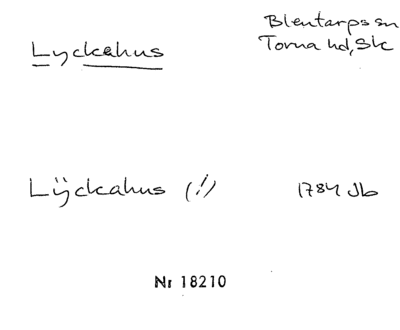 Lyckahus
Blentarps sn
Torna hd, Sk
Lÿckahus (!)
1784 Jb
Nr 18210